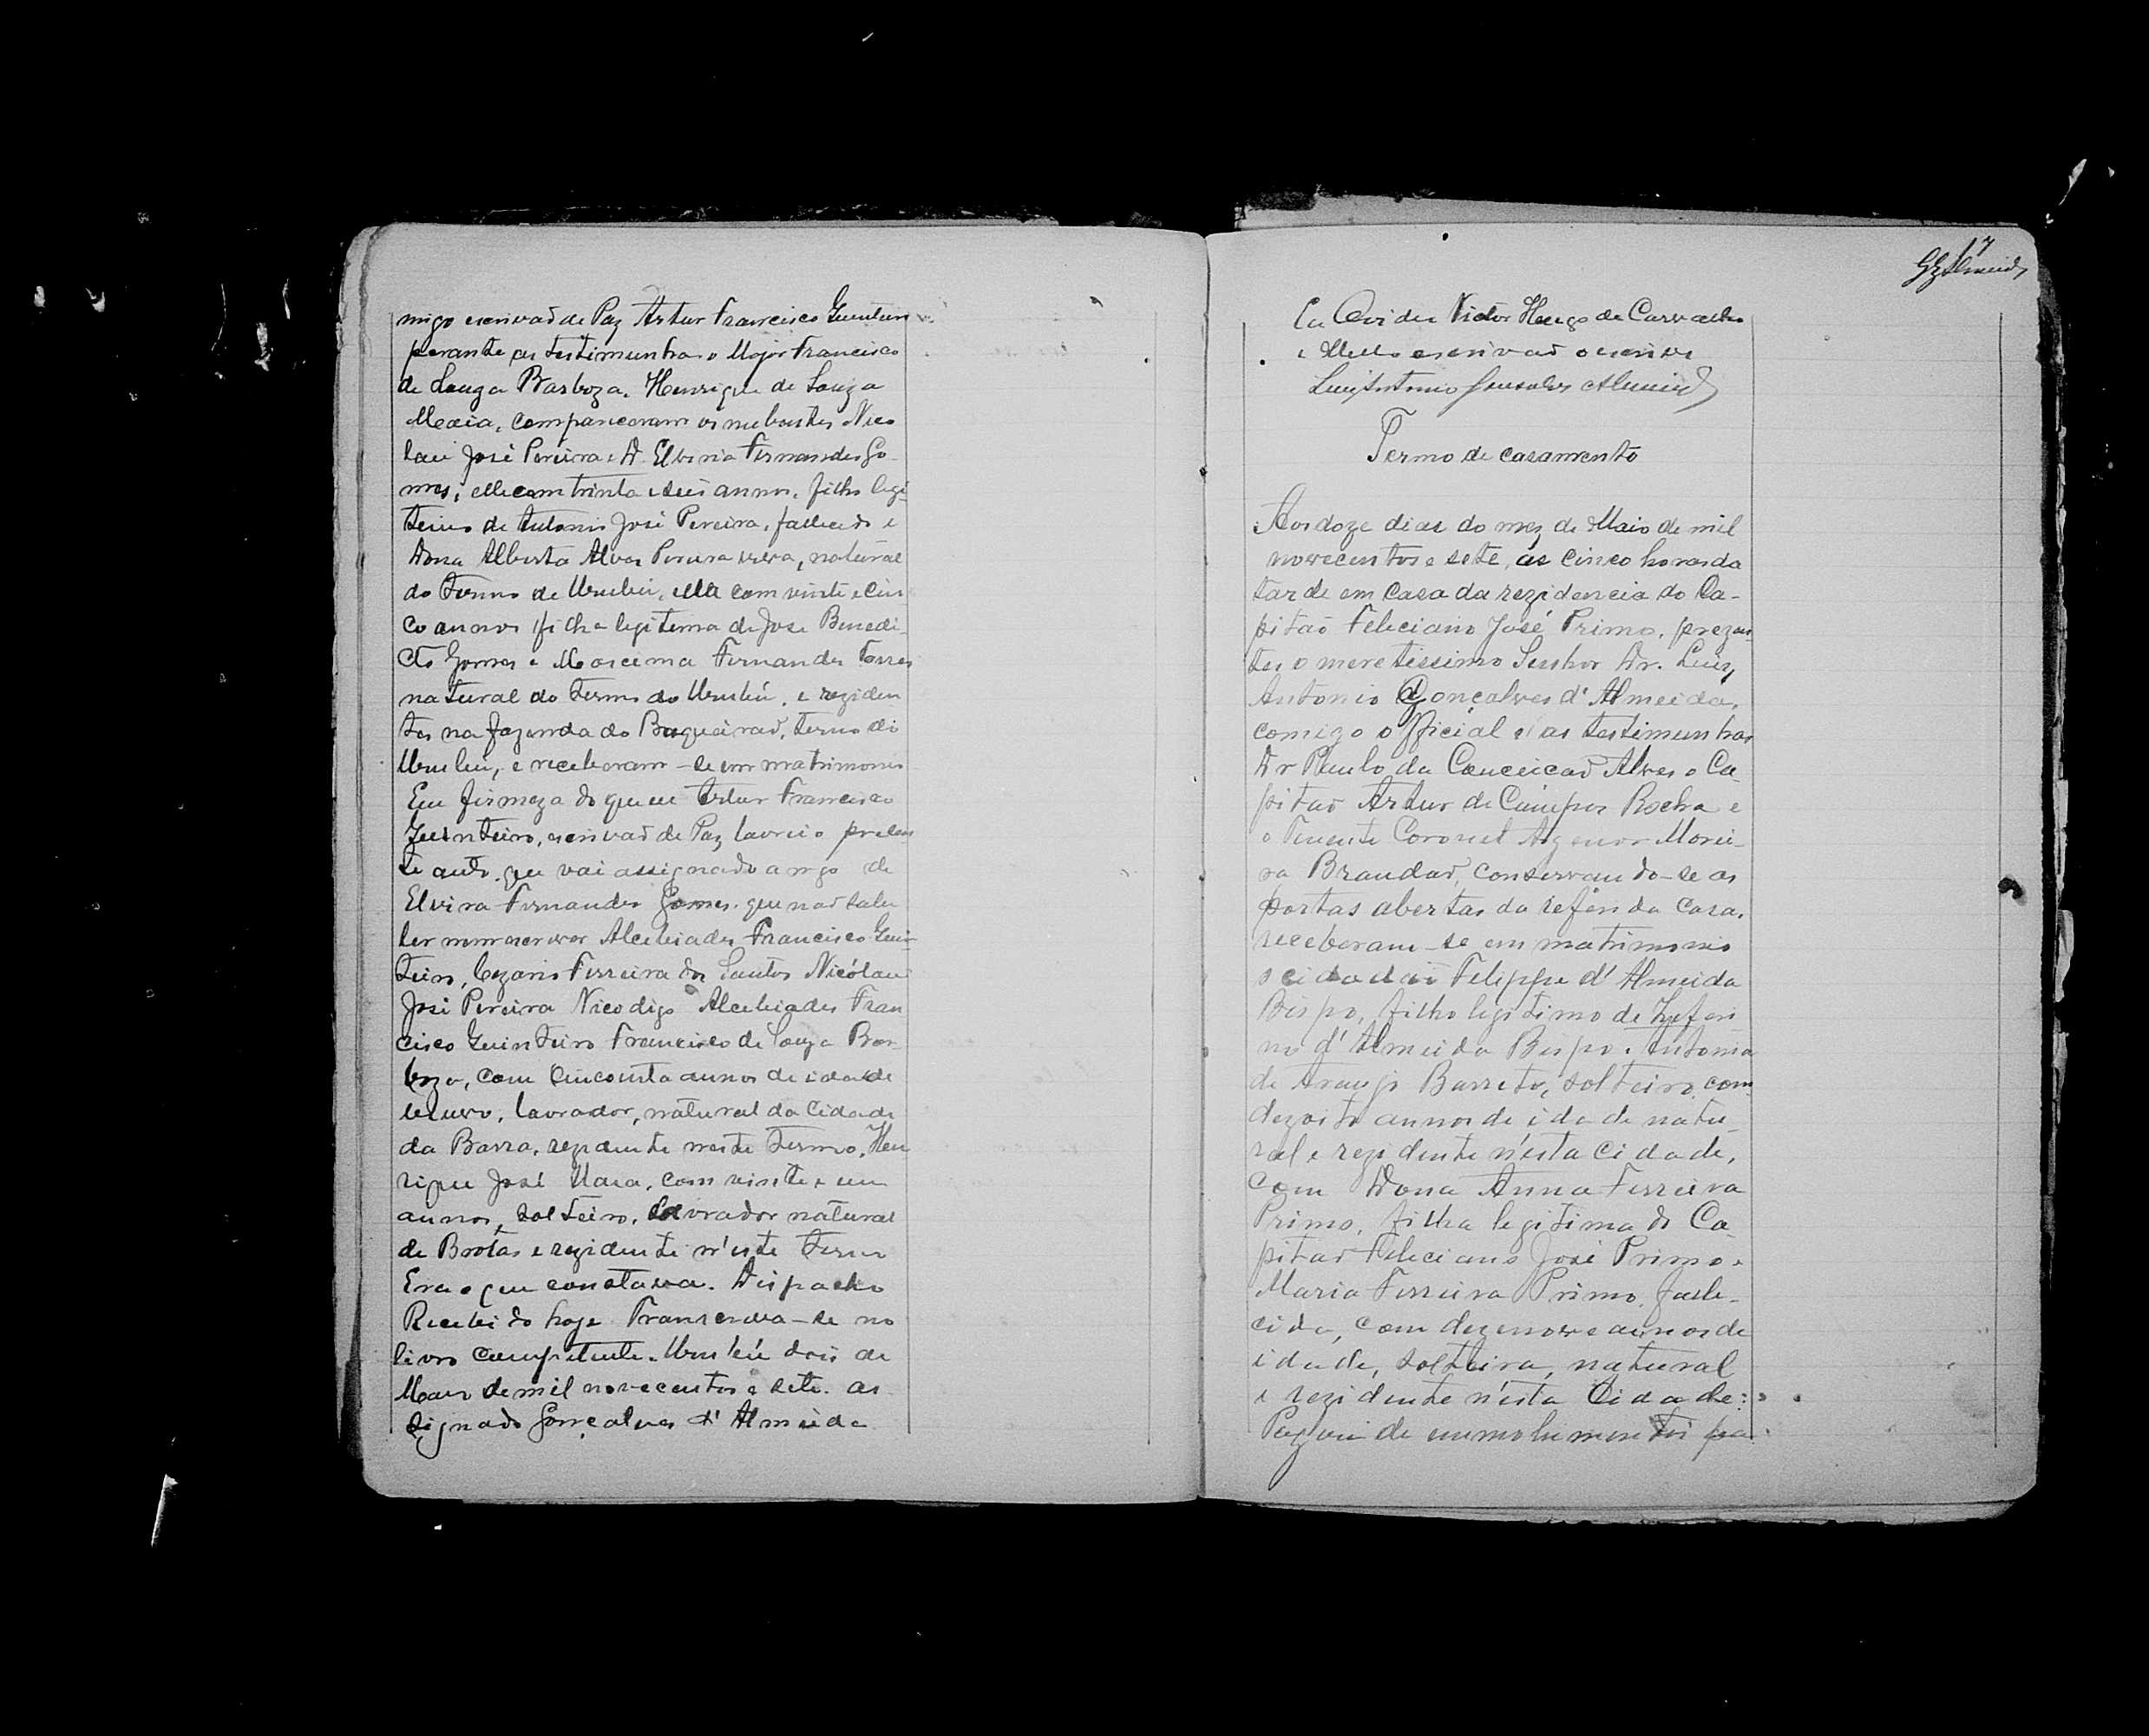 migo escrivaõ de Paz Artur Francisco Guinteiro
perante as testimunhas o Major Francisco
de Souza Barboza, Henrique de Souza
comparecoram os nubentes Nico
lau José Pereira e D. Elvira Fernandes Go
mes; elle com trinta e seis annos, filho legi
timo de Antonio José Pereira, fallecido e
Dona Alberta Alves Pereira viva, natural
do Termo de Urubú, ella com vinte e cin
co annos filha legitima de Jose Benedi
cto Gomes e Fernandes Torres
natural do termo do Urubú, e reziden
tes na fazenda do Boqueiraõ, termo do
Urubú, e receberam-se em matrimonio
Em firmeza do que eu Artur Francisco
Guinteiro, escrivaõ de Paz lavrei o presen
te auto que vai assignado a rogo de
Elvira Fernandes Gomes que naõ sabe
ler nem escrever Alcebiades Francisco Guin
teiro, Cezario Ferreira dos Santos Nicólau
José Pereira Nicodigo Alcebiades Fran
cisco Guinteiro Francisco de Souza Bar
boza, com cincoenta annos de idade
viuvo, lavrador, natural da Cidade
da Barra, rezidente neste termo, Hen
rique José com vinte e um
annos, solteiro, lavrador natural
de Brotas e rezidente n'este termo
Era o que constava. Dispacho
Recebido hoje Transcreva-se no
livro competente. Urubú dois de
Maio de mil novecentos e sete. as
signado Gonçalves d'Almeida
7
GzAlmeida
Eu Ovidio Victor Hugo de Carvalho
e Mello escrivaõ o escrevi
Luiz Antonio Gonsalves Almeida
Termo de casamento
Aos doze dias do mez de Maio de mil
novecentos e sete, as cinco horas da
tarde em casa da rezidencia do Ca-
pitaõ Feliciano José Primo, prezen
tes o meretissimo Senhor Dr. Luiz
Antonio Gonçalves d'Almeida,
comigo official e as testimunhas
Dr Paulo da Conceicaõ Alves o Ca
pitaõ Artur de Campos Rocha e
o Tenente Coronel Agenor Morei-
ra Brandaõ, conservando-se as
portas abertas da referida casa,
receberam-se em matrimonio
o cidadaõ Felippe d'Almeida
Bispo, filho legitimo de Zeferi
no d'Almeida Bispo e Antonia
de Araujo Barreto, solteiro, com
dezoito annos de idade natu-
ral e rezidente n'esta Cidade,
com Dona Anna Ferreira
Primo, filha legitima do Ca
pitaõ Feliciano José Primo e
Maria Ferreira Primo, falle-
cida, com dezenove annos de
idade, solteira, natural
e rezidente n'esta Cidade:
Paguei de emmolumentos pa